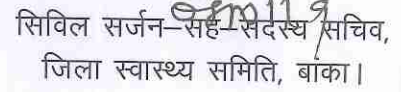 सिविल सर्जन–सह–सदस्य सचिव,
जिला स्वास्थ्य समिति, बांका।